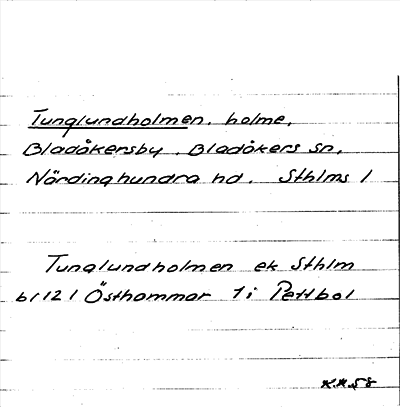 Tunglundholmen. holme,
Bladåkersby. Bladåkers sn,
Närdinghundra hd. Sthlms l
Tunglundholmen ek Sthlm
bl 12 l Östhammar 1 i Pettbol
K.H. 58